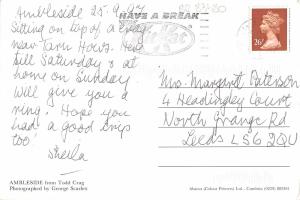 Ambleside 25.9.97
Sitting on top of a crag
near Tarn Hows. Here
till Saturday & at
home on Sunday.
Will give you a
ring. Hope you
had a good trip
too!
Sheila
AMBLESIDE from Todd Crag
Photographed by George Scarlen
HAVE A BREAK
26
Mrs. Margaret Paterson
4 Headingley Court
North Grange Rd
Leeds LS6 2QU